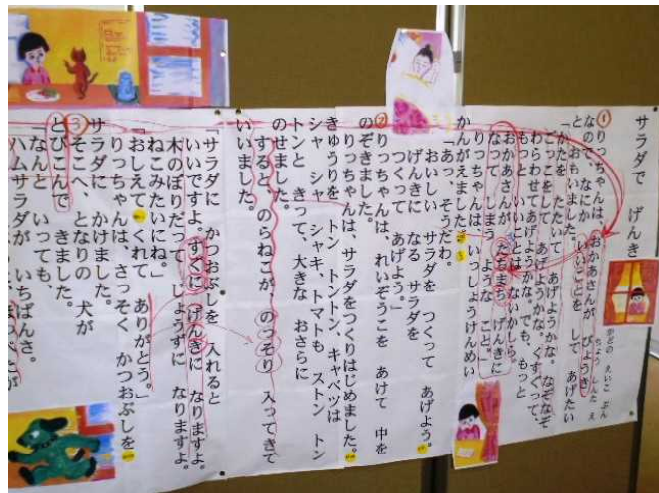 サラダで げんき
かどの えいこ ぶん
ちょう しんた え
① りっちゃんは、おかあさんが びょうき
なので、なにか いいことを して あげたい
と おもいました。
「かたを たたいて あげようかな。なぞなぞ
ごっこを して あげようかな。くすぐって、
わらわせて あげようかな。でも、もっと
もっと いいことは ないかしら。
おかあさんが、たちまち げんきに
なって しまう ような こと。」
りっちゃんは、いっしょうけんめい
かんがえました。
「あっ、そうだわ。
おいしい サラダを つくって あげよう。
げんきに なる サラダを
つくって あげよう。」
② りっちゃんは、れいぞうこを あけて 中を
のぞきました。
りっちゃんは、サラダをつくりはじめました。
きゅうりを トン トントン、キャベツは
シャ シャ シャキ、トマトも ストン トン
トンと きって、大きな おさらに
のせました。
すると、のらねこが、のっそり 入ってきて
いいました。
「サラダに かつおぶしを 入れると
いいですよ。すぐに げんきに なりますよ。
木のぼりだって じょうずに なりますよ。
ねこみたいにね。」
「おしえて くれて ありがとう。」
りっちゃんは、さっそく かつおぶしを
サラダに かけました。
③ そこへ、となりの 犬が
とびこんで きました。
「なんと いっても、
ハムサラダが いちばんさ。